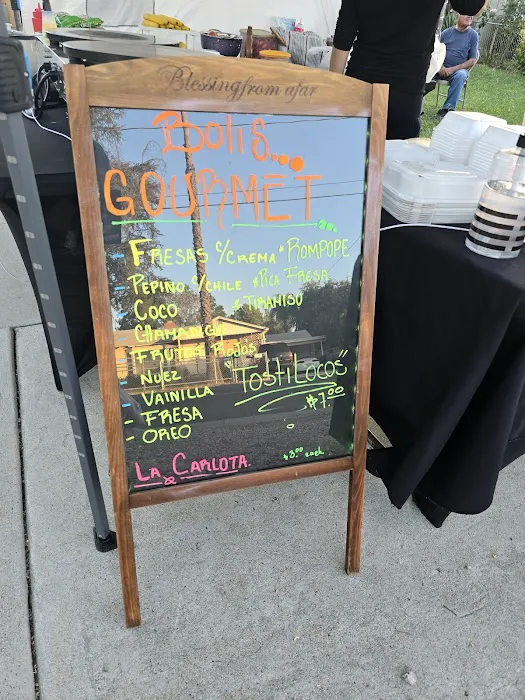 Blessing from afar
Bolis...
GOURMET
- FRESAS C/CREMA • ROMPOPE
- PEPINO C/CHILE • PICA FRESA
- COCO • TIRAMISU
- CHAMANGO
- FRUTOS ROJOS
- NUEZ
- VAINILLA
- FRESA
- OREO
"TOSTILOCOS"
$7.00
$3.00 each
LA CARLOTA.